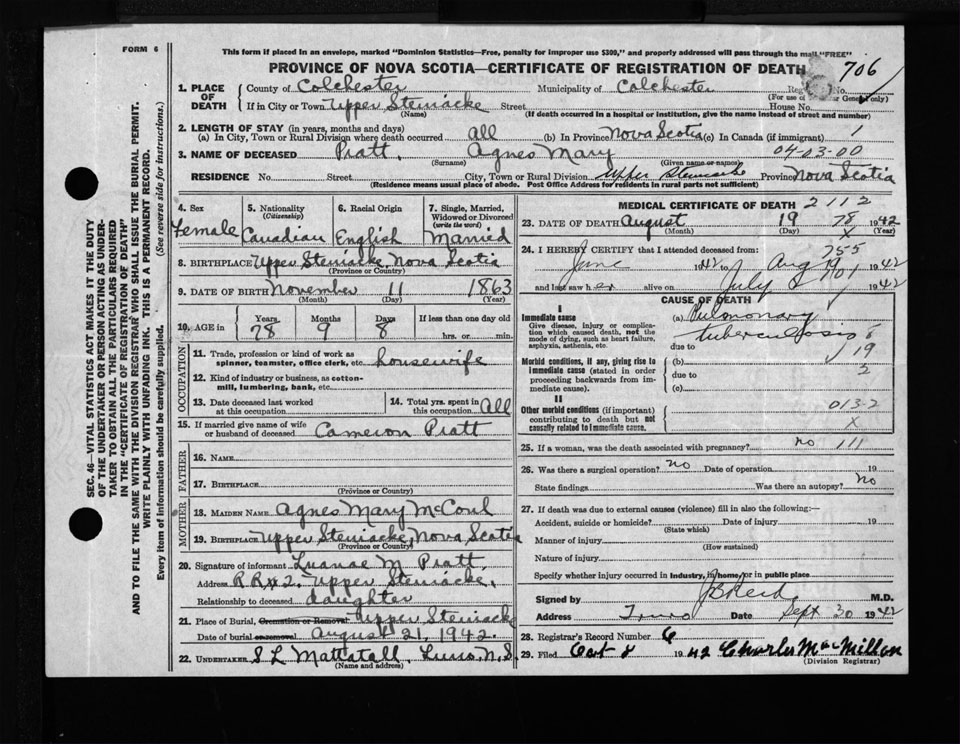 FORM 6
This form if placed in an envelope, marked "Dominion Statistics—Free, penalty for improper use $300," and properly addressed will pass through the mail "FREE"
PROVINCE OF NOVA SCOTIA—CERTIFICATE OF REGISTRATION OF DEATH 706
1. PLACE OF DEATH
County of Colchester Municipality of Colchester
If in City or Town Upper Stewiacke Street House No.
(Name) (If death occurred in a hospital or institution, give the name instead of street and number)
2. LENGTH OF STAY (in years, months and days)
(a) In City, Town or Rural Division where death occurred all (b) In Province Nova Scotia (c) In Canada (if immigrant) 1
3. NAME OF DECEASED Pratt, Agnes Mary 04-03-00
(Surname) (Given name or names)
RESIDENCE No. Street City, Town or Rural Division Upper Stewiacke Province Nova Scotia
(Residence means usual place of abode. Post Office Address for residents in rural parts not sufficient)
4. Sex Female
5. Nationality (Citizenship) Canadian
6. Racial Origin English
7. Single, Married, Widowed or Divorced (write the word) Married
8. BIRTHPLACE Upper Stewiacke Nova Scotia
(Province or Country)
9. DATE OF BIRTH November 11 1863
(Month) (Day) (Year)
10. AGE in Years 78 Months 9 Days 8 If less than one day old hrs. or min.
OCCUPATION
11. Trade, profession or kind of work as spinner, teamster, office clerk, etc. housewife
12. Kind of industry or business, as cotton-mill, lumbering, bank, etc.
13. Date deceased last worked at this occupation
14. Total yrs. spent in this occupation All
15. If married give name of wife or husband of deceased Cameron Pratt
FATHER
16. NAME
17. BIRTHPLACE
(Province or Country)
MOTHER
18. MAIDEN NAME Agnes Mary McConl
19. BIRTHPLACE Upper Stewiacke, Nova Scotia
(Province or Country)
20. Signature of informant Luanae M Pratt
Address R R #2, Upper Stewiacke,
Relationship to deceased daughter
21. Place of Burial, Cremation or Removal Upper Stewiacke
Date of burial or removal August 21, 1942.
22. UNDERTAKER S L Mattatall, Truro N.S.
(Name and address)
MEDICAL CERTIFICATE OF DEATH 2112
23. DATE OF DEATH August 19 78 1942
(Month) (Day) X (Year)
24. I HEREBY CERTIFY that I attended deceased from: 755
June 1942 to Aug 19 1942
and last saw her alive on July 1942
CAUSE OF DEATH
Immediate cause
Give disease, injury or complication which caused death, not the mode of dying, such as heart failure, asphyxia, asthenia, etc.
(a) Pulmonary tuberculosis
due to 19
Morbid conditions, if any, giving rise to immediate cause (stated in order proceeding backwards from immediate cause).
(b) 2
due to
(c)
II
Other morbid conditions (if important) contributing to death but not causally related to immediate cause.
013-2
X
25. If a woman, was the death associated with pregnancy? no 111
26. Was there a surgical operation? no Date of operation 19
State findings Was there an autopsy? no
27. If death was due to external causes (violence) fill in also the following:—
Accident, suicide or homicide? Date of injury 19
(State which)
Manner of injury
(How sustained)
Nature of injury
Specify whether injury occurred in industry, in home, or in public place
Signed by J B Reid M.D.
Address Truro Date Sept 30 1942
28. Registrar's Record Number 6
29. Filed Oct 8 1942 Charles MacMillan
(Division Registrar)
SEC. 46—VITAL STATISTICS ACT MAKES IT THE DUTY
OF THE UNDERTAKER OR PERSON ACTING AS UNDER-
TAKER TO OBTAIN ALL THE PARTICULARS REQUIRED
IN THE "CERTIFICATE OF REGISTRATION OF DEATH"
AND TO FILE THE SAME WITH THE DIVISION REGISTRAR WHO SHALL ISSUE THE BURIAL PERMIT.
WRITE PLAINLY WITH UNFADING INK. THIS IS A PERMANENT RECORD.
Every item of information should be carefully supplied. (See reverse side for instructions.)